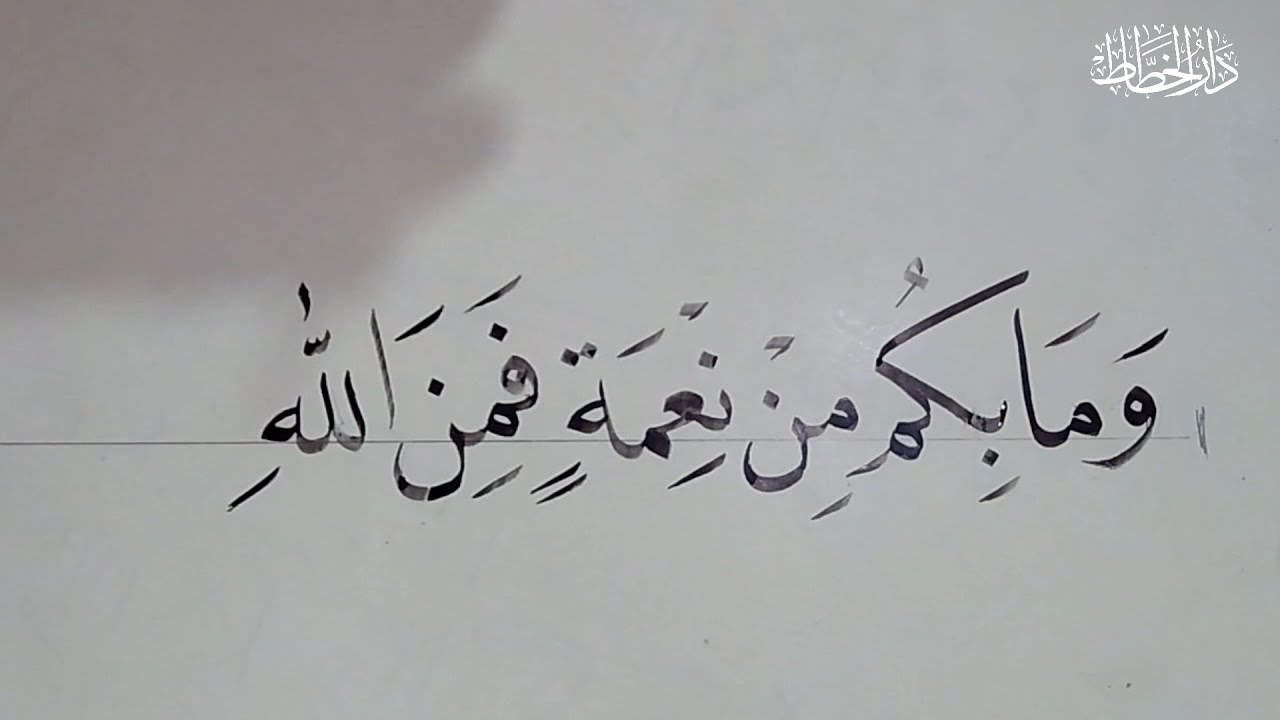 دَارُ الخَطَّاط
وَمَا بِكُم مِنْ نِعْمَةٍ فَمِنَ اللّٰهِ